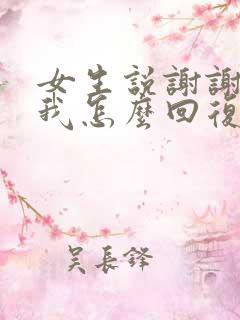 女生説謝謝
我怎麼回復
吳長鋒